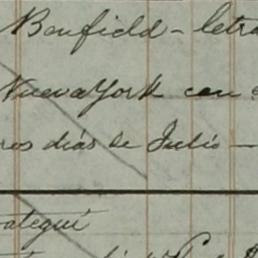 Banfield - letra
Nueva York con
ros dias de Julio -
ategui